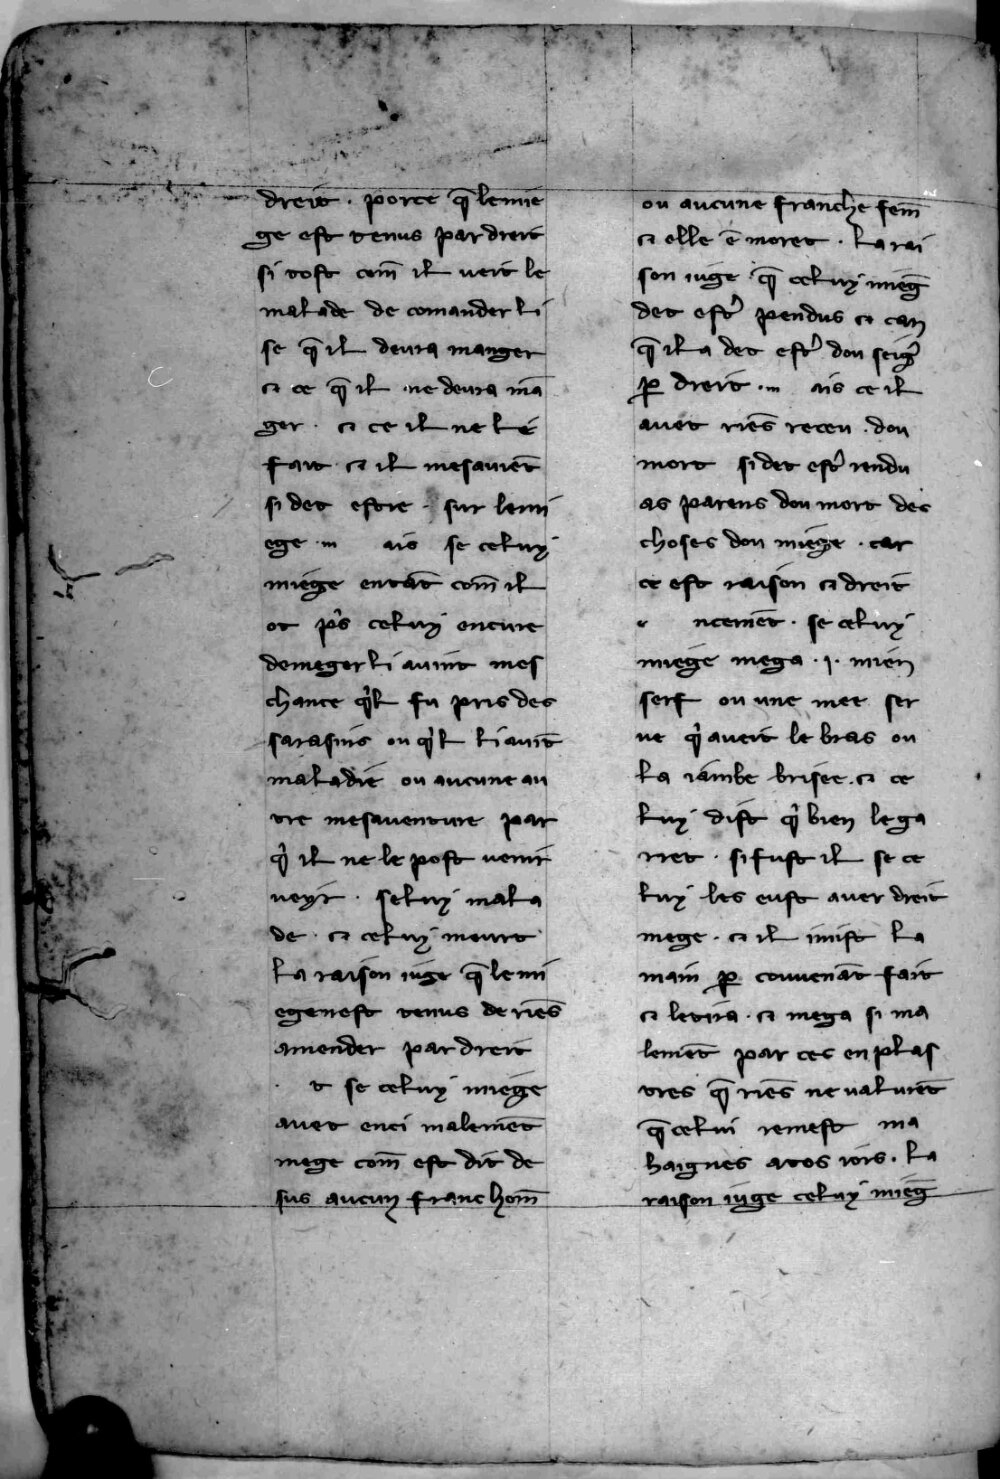 dreit · porce q̄ lemie
ge est tenus par dreit
si tost com̄ il veit le
malade de comander li
se q̄ il devra manger
⁊ ce q̄ il ne devra mā
ger · ⁊ ce il ne le
fait ⁊ il mesavient̄
si det estre · sur lemi
ege · m ais se celuy
miege entāt com̄ il
ot p̉s celuy oncure
demeger li avint mes
chance q̉l fu pris des
sarasins ou q̉l li avīt
maladie ou aucune au
tre mesaventure par
q̉ il ne le post venir
veyr · seluy mala
de · ⁊ celuy meurt
la raison iuge q̄ lemi
egenest tenus de riēs
amender par dreit
t se celuy miege
avet enci malemēt
mege com̄ est dit de
sus aucun franc hom̄
ou aucune franche fem̄
⁊ elle ē moret · la rai
son iuge q̄ celuy mieḡ
det est̉ pendus ⁊ can
q̄ il a det est̉ dou seig̉
p̱ dreit · m ais ce il
avet riēs receu · dou
mort si det est̉ rendu
as parens dou mort des
choses dou miege · car
ce est raison ⁊ dreit
ncemēt · se celuy
miege mega · ⁊ · mien
serf ou une mee ser
ve q̉ aveit le bras ou
la iambe brisee · ⁊ ce
luy dist q̉ bien le ga
rret · si fust il se ce
luy les eust aver dreit
mege · ⁊ il imist la
main p̱ covenāt fait
⁊ letira · ⁊ mega si ma
lemēt par ces enplas
tres q̄ riēs ne valurēt
q̄ celui remest ma
haignes atos iors · la
raison iuge celuy mieḡ